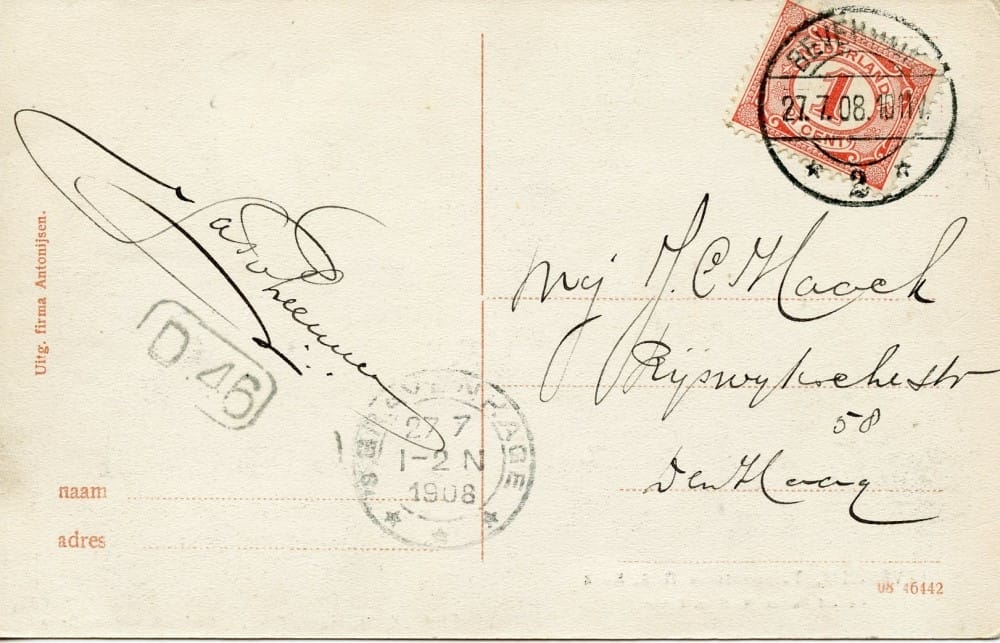 NEDERLAND
1
CENT
27.7.08.10
2
Uitg. firma Antonijsen.
Mej J. C. Haack
Rijswijkschestr
58
Den Haag
D.46
'S GRAVENHAGE
27 7
1-2 N
1908
naam
adres
08 46442